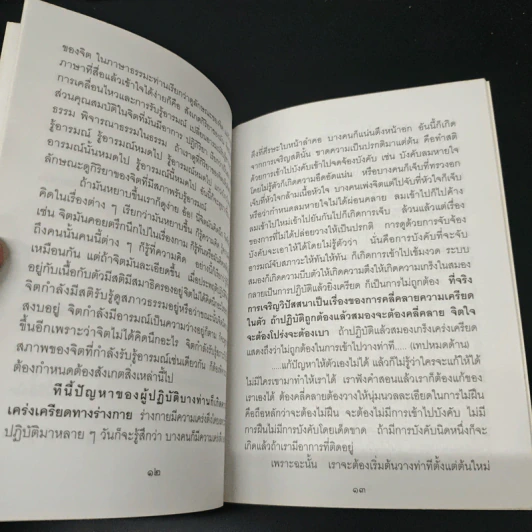 ของจิต ในภาษาธรรมะท่านเรียกว่าดูลักษณะ
ภาษาที่สื่อแล้วเข้าใจได้ง่ายก็คือ สังเกตกิริยาของ
การเคลื่อนไหวและการรับรู้อารมณ์ เปลี่ยนแปลง
ส่วนคุณสมบัติในจิตที่มันมีอาการ ปฏิกิริยา
ธรรม พิจารณาธรรมในธรรม ถ้าเราดูที่กิริยา
รู้อารมณ์ รู้อารมณ์หมดไป รู้อารมณ์
อารมณ์นั้นหมดไป รู้อารมณ์นี้หมดไป
ลักษณะดูกิริยาของจิตที่มีสภาพรับรู้อารมณ์
ถ้ามันหยาบขึ้นเราก็ดูง่าย อ้อ! นี่จิตมัน
คิดในเรื่องต่าง ๆ เรียกว่ามันหยาบขึ้น ก็รู้ความคิด
เช่น จิตมันคอยตรึกนึกไปในเรื่องกาม ก็รู้
ถึงคนนั้นคนนี้ต่าง ๆ ก็รู้ที่ความคิด อย่างนี้
เหมือนกัน แต่ถ้าจิตมันละเอียดขึ้น เมื่อประพฤติปฏิบัติ
อยู่กับเนื้อกับตัวมีสติมีสมาธิครองอยู่ จิตไม่ได้คิดนึก
จิตกำลังมีสติรับรู้ดูสภาวธรรมอยู่หรือว่าขณะนี้จิตกำลัง
สงบอยู่ จิตกำลังมีอารมณ์เป็นความว่างอยู่
ขึ้นอีกเพราะว่าจิตไม่ได้คิดนึกอะไร จิตกำลังรู้
สภาพของจิตที่กำลังรับรู้อารมณ์เช่นเดียวกัน
ต้องกำหนดต้องสังเกตสิ่งเหล่านี้ไป
ทีนี้ปัญหาของผู้ปฏิบัติบางท่านก็เกิด
เคร่งเครียดทางร่างกาย ร่างกายมีความเคร่งตึง
ปฏิบัติมาหลาย ๆ วันก็จะรู้สึกว่า บางคนก็มีความเคร่งตึง
๑๒
ตึงที่ศีรษะใบหน้าลำคอ บางคนก็แน่นตึงหน้าอก อันนี้ก็เกิด
จากการเจริญสตินั้น ขาดความเป็นปรกติมาแต่ต้น คือทำสติ
ด้วยการเข้าไปบังคับเข้าไปจดจ้องบังคับ เช่น บังคับลมหายใจ
โดยไม่รู้ตัวก็เกิดความอึดอัดแน่น หรือบางคนก็เจ็บที่ทรวงอก
เจ็บที่หัวใจกล้ามเนื้อหัวใจ บางคนเพ่งจิตแต่ไปจับที่หัวใจก็เจ็บ
หรือว่ากำหนดลมหายใจไม่ได้ผ่อนคลาย ลมเข้าไปก็ไปค้าง
ลมเข้าไปใหม่เข้าไปยันกันไปก็เกิดการเจ็บ ล้วนแล้วแต่เรื่อง
ของการที่ไม่ได้ปล่อยวางให้เป็นปรกติ การดูด้วยการจับจ้อง
บังคับจะเอาให้ได้โดยไม่รู้ตัวว่า นั่นคือการบังคับที่จะจับ
อารมณ์จับสภาวะให้ทันให้ทัน ก็เกิดการเข้าไปเข้มงวด ระบบ
สมองก็เกิดความบีบตัวให้เกิดความตึงให้เกิดความเกร็งในสมอง
กลายเป็นการปฏิบัติแล้วยิ่งเครียด ก็เป็นการไม่ถูกต้อง ที่จริง
การเจริญวิปัสสนาเป็นเรื่องของการคลี่คลายความเครียด
ในตัว ถ้าปฏิบัติถูกต้องแล้วสมองจะต้องคลี่คลาย จิตใจ
จะต้องโปร่งจะต้องเบา ถ้าปฏิบัติแล้วสมองเกร็งเคร่งเครียด
แสดงถึงว่าไม่ถูกต้องในการเข้าไปวางท่าที..... (เทปหมดด้าน)
....แก้ปัญหาให้ตัวเองไม่ได้ แล้วก็ไม่รู้ว่าใครจะแก้ให้ได้
ไม่มีใครเขามาทำให้เราได้ เราฟังคำสอนแล้วเราก็ต้องแก้ของ
เราเองให้ได้ ต้องคลี่คลายต้องวางให้นุ่มนวลละเอียดในการไม่ฝืน
คือถือหลักว่าจะต้องไม่ฝืน จะต้องไม่มีการเข้าไปบังคับ ไม่มี
การฝืนไม่มีการบังคับโดยเด็ดขาด ถ้ามีการบังคับนิดหนึ่งก็จะ
เกิดแล้วถ้าเรามีอาการที่ติดอยู่
เพราะฉะนั้น เราจะต้องเริ่มต้นวางท่าทีตั้งแต่ต้นใหม่
๑๓